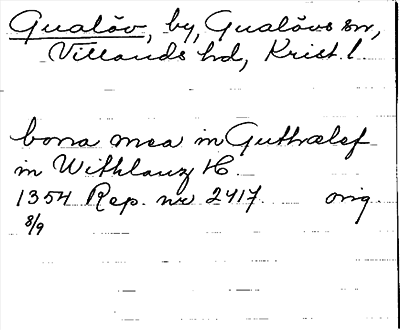 Gualöv, by, Gualövs sn,
Villands hd, Krist. l.
bona mea in Guthælef
in Withlanz H
1354 Rep. nr 2417 orig.
8/9